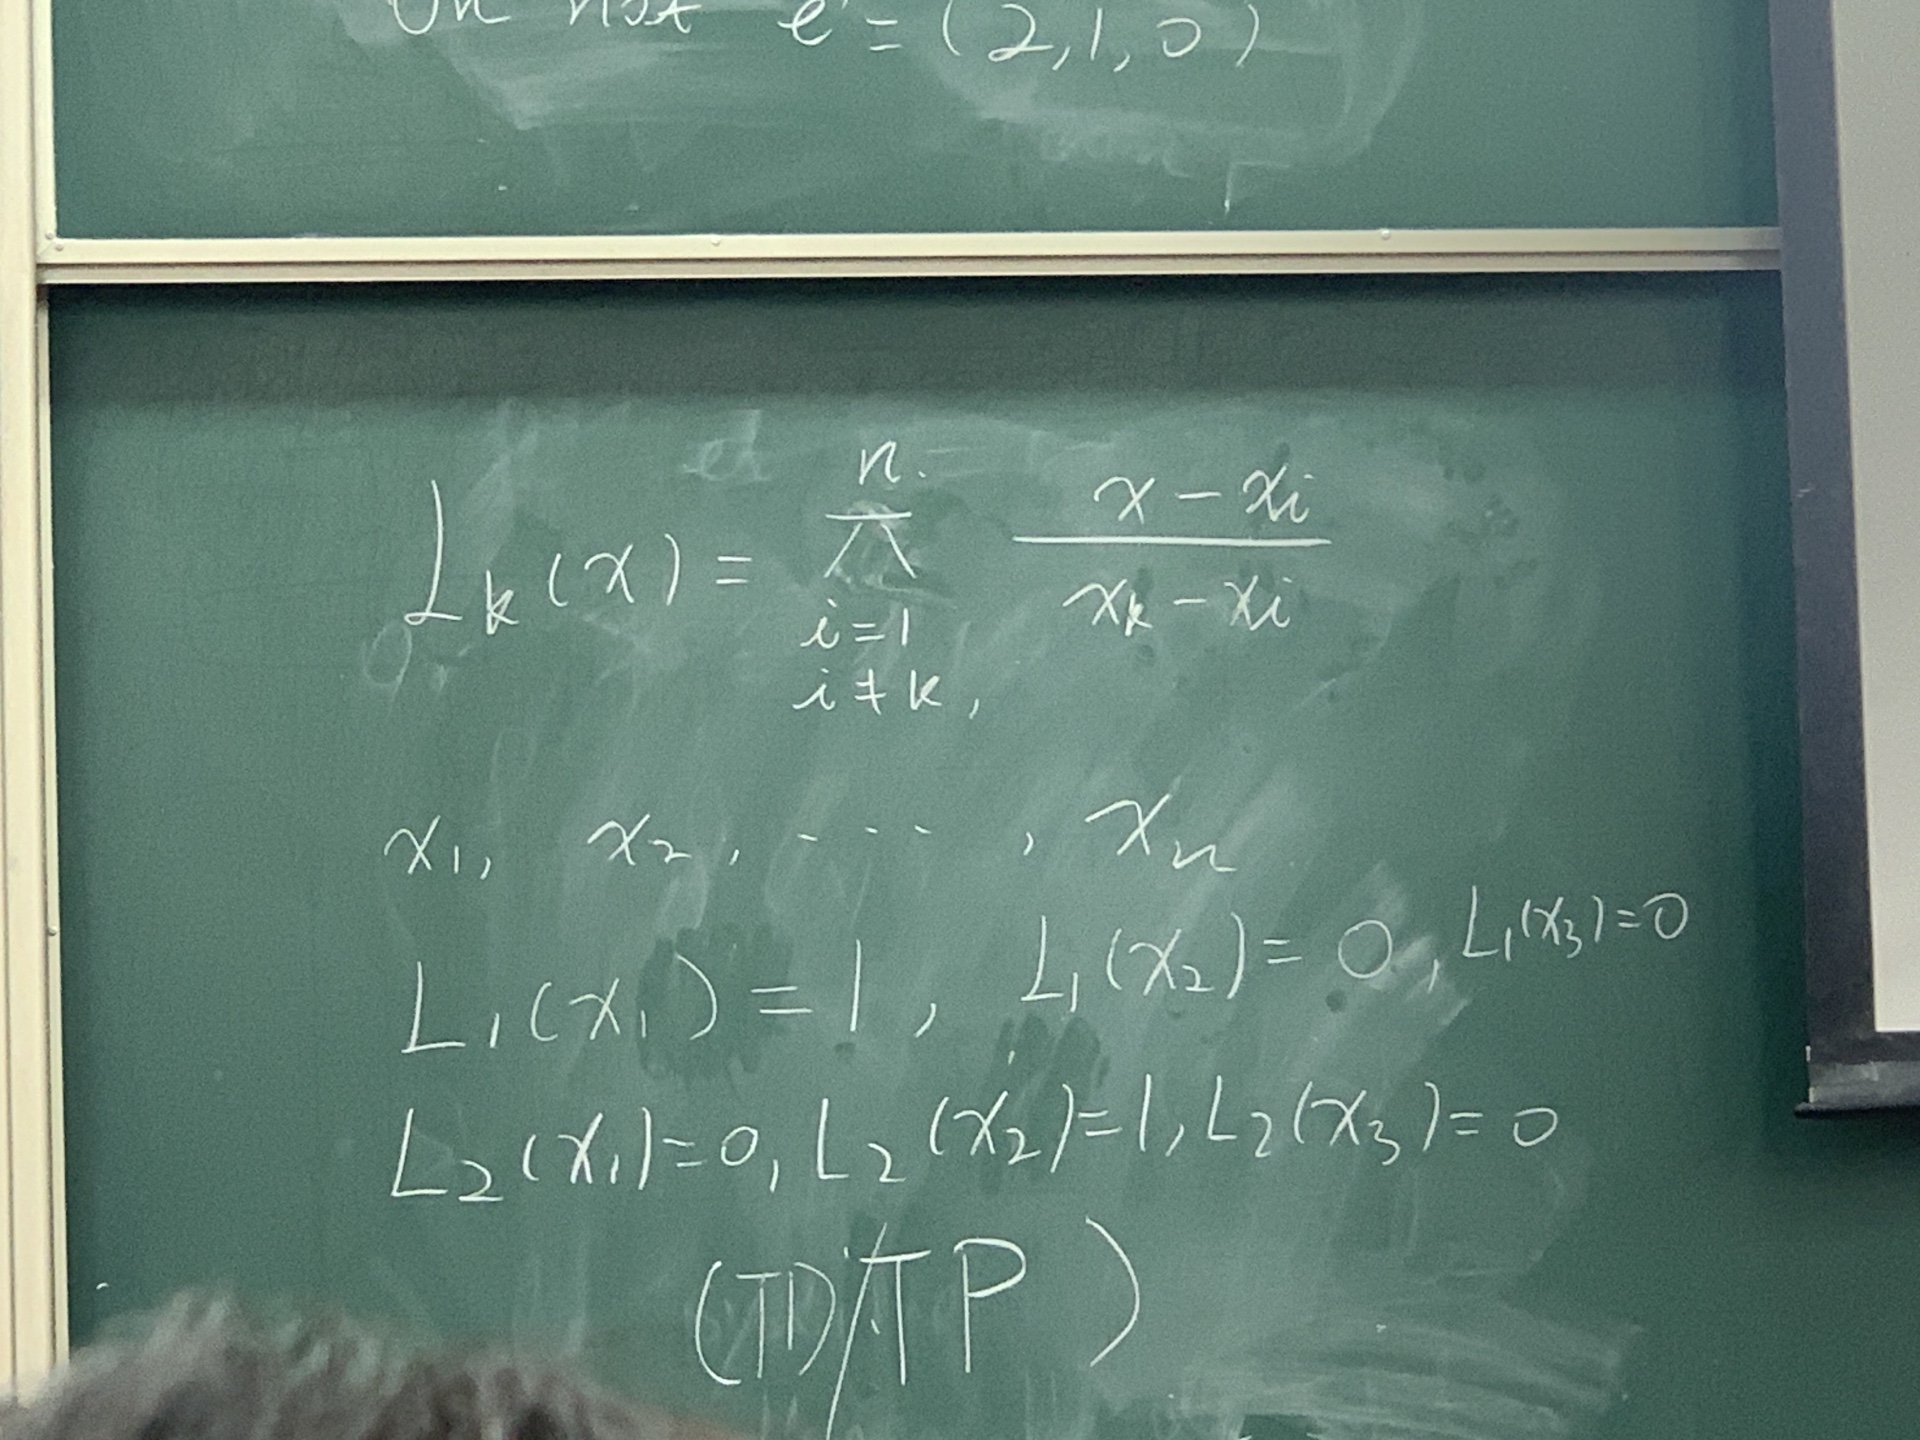 e = (2,1,0)
n
L_k(x) = ∏ (x - x_i)/(x_k - x_i)
i=1
i≠k,
x_1, x_2, ..... , x_n
L_1(x_1) = 1, L_1(x_2) = 0, L_1(x_3)=0
L_2(x_1)=0, L_2(x_2)=1, L_2(x_3)=0
(TD/TP)